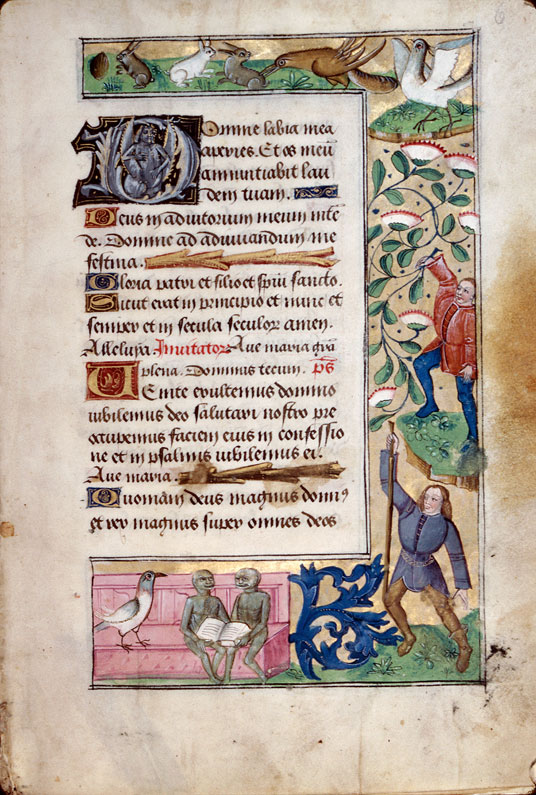 Domine labia mea
aperies. Et os meū
annuntiabit lau
dem tuam.
Deus in adiutorium meum inte
de. Domine ad adiuuandum me
festina.
Gloria patri et filio et spiri sancto.
Sicut erat in principio et nunc et
semper et in secula seculor amen.
Alleluya. Inuitator Aue maria gra
plena. Dominus tecum. ps
Uenite exultemus domino
iubilemus deo salutari nostro pre
occupemus faciem eius in confessio
ne et in psalmis iubilemus ei.
Aue maria.
Quoniam deus magnus domi9
et rex magnus super omnes deos